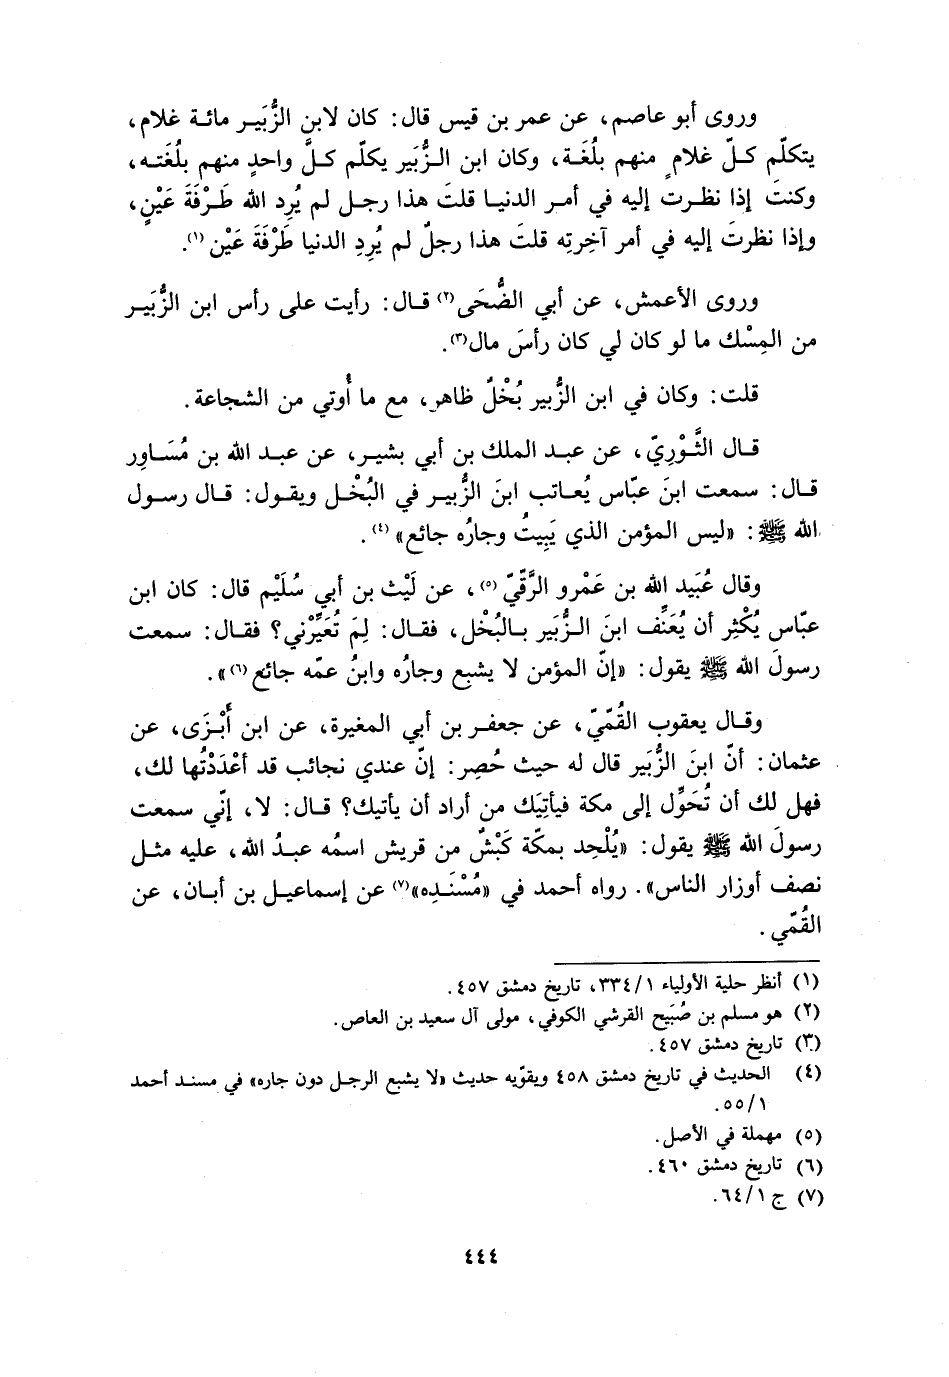 وروى أبو عاصم، عن عمر بن قيس قال: كان لابن الزُّبَيـر مائـة غلام،
يتكلّم كـلّ غلامٍ منهم بلُغَـة، وكان ابن الـزُّبَير يكلّم كـلَّ واحدٍ منهم بلُغَتـه،
وكنتَ إذا نظـرت إليه في أمـر الدنيـا قلتَ هذا رجـل لم يُرِد الله طَـرْفَةَ عَيْنٍ،
وإذا نظرتَ إليه في أمر آخِرتِه قلتَ هذا رجلٌ لم يُرِدِ الدنيا طَرْفَةَ عَيْن(١).
وروى الأعمش، عن أبي الضُّحَى(٢) قـال: رأيت على رأس ابن الزُّبَيـر
من المِسْك ما لو كان لي كان رأسَ مال(٣).
قلت: وكان في ابن الزُّبير بُخْلٌ ظاهر، مع ما أُوتي من الشجاعة.
قـال الثَّـوْريّ، عن عبـد الملك بن أبي بشيـر، عن عبـد الله بن مُسَـاوِر
قـال: سمعت ابنَ عبّاس يُعـاتب ابنَ الزُّبيـر في البُخْـل ويقـول: قـال رسـول
الله ﷺ: «ليس المؤمن الذي يَبِيتُ وجارُه جائع»(٤).
وقال عُبَيد الله بن عَمْرو الرَّقّيّ(٥)، عن لَيْث بن أبي سُلَيْم قال: كان ابن
عبّاس يُكْثِر أن يُعَنِّف ابنَ الـزُّبَير بـالبُخْل، فقـال: لِمَ تُعَيِّرْني؟ فقـال: سمعت
رسولَ الله ﷺ يقول: «إنّ المؤمن لا يشبع وجارُه وابنُ عمّه جائع(٦)».
وقـال يعقوب القُمّيّ، عن جعفـر بن أبي المغيرة، عن ابن أَبْـزَى، عن
عثمان: أنّ ابنَ الزُّبَير قال له حيث حُصِر: إنّ عندي نجائب قد أعْدَدْتُها لك،
فهل لك أن تُحَوَّل إلى مكة فيأتيَك من أراد أن يأتيك؟ قـال: لا، إنّي سمعت
رسولَ الله ﷺ يقول: «يُلْحِد بمكّة كَبْشٌ من قريش اسمُه عبدُ الله، عليه مثـل
نصف أوزار الناس». رواه أحمد في «مُسْنَـدِه»(٧) عن إسماعيـل بن أبـان، عن
القُمّي.
(١) أنظر حلية الأولياء ٣٣٤/١، تاريخ دمشق ٤٥٧.
(٢) هو مسلم بن صُبَيح القرشي الكوفي، مولى آل سعيد بن العاص.
(٣) تاريخ دمشق ٤٥٧.
(٤) الحديث في تاريخ دمشق ٤٥٨ ويقوّيه حديث «لا يشبع الرجـل دون جاره» في مسنـد أحمد
٥٥/١.
(٥) مهملة في الأصل.
(٦) تاريخ دمشق ٤٦٠.
(٧) ج ٦٤/١.
٤٤٤